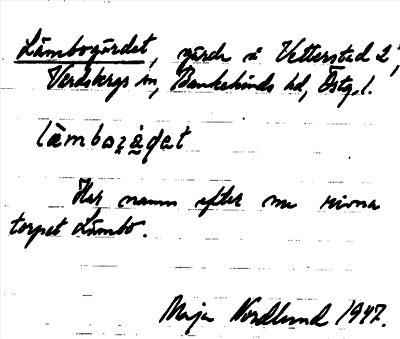 Lämbogärdet, gärde i Vetterstad 2,
Värdsbergs sn, Bankekinds hd, Östg. l.
Har namn efter nu rivna
torpet Lämbo.
Maja Nordlund 1947.